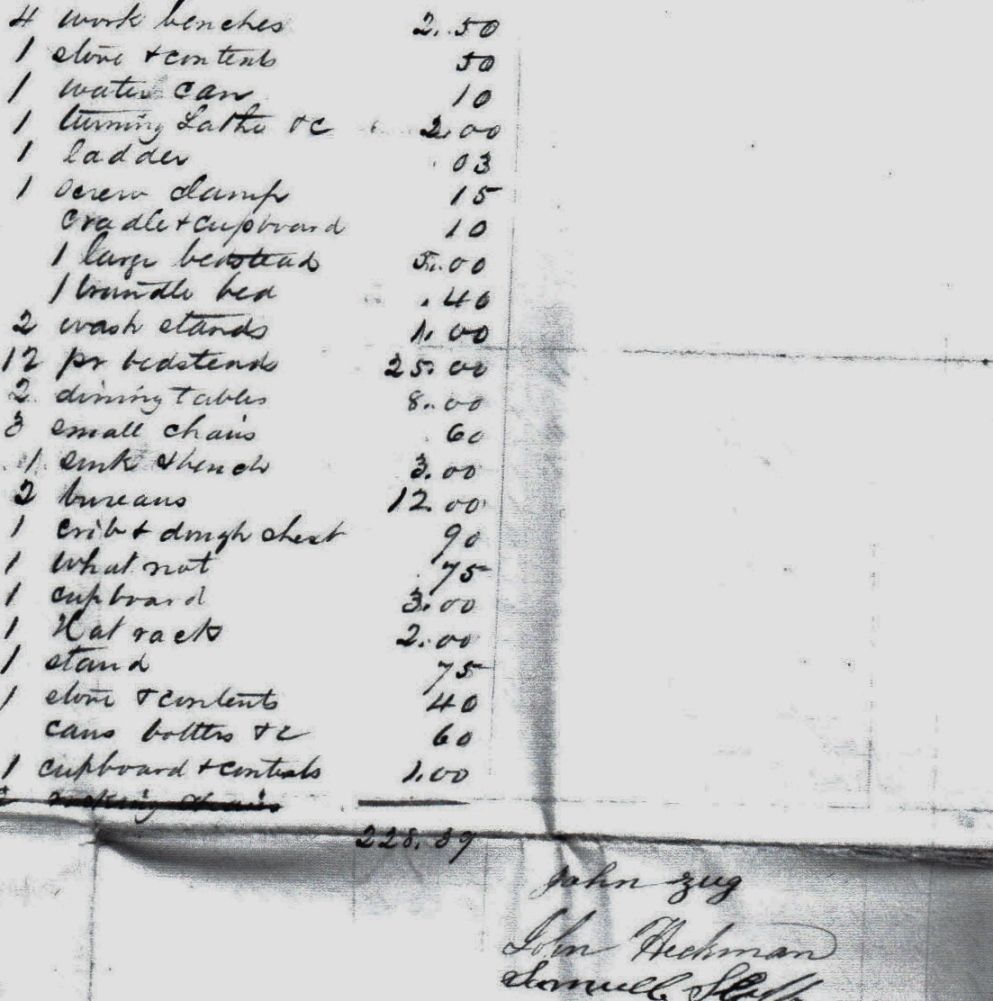 4 work benches 2.50
1 stove & contents 50
1 water can 10
1 turning Lathe &c 2.00
1 ladder 03
1 screw clamp 15
cradle & cupboard 10
1 large bedstead 5.00
1 trundle bed .40
2 wash stands 1.00
12 pr bedsteads 25.00
2 dining tables 8.00
3 small chairs 60
1 sink & bench 3.00
2 bureaus 12.00
1 crib & dough chest 90
1 what not 75
1 cupboard 3.00
1 Hat rack 2.00
1 stand 75
1 stove & contents 40
cans bottles &c 60
1 cupboard & contents 1.00
rocking chairs
228.39
John Zug
John Heckman
Samuel